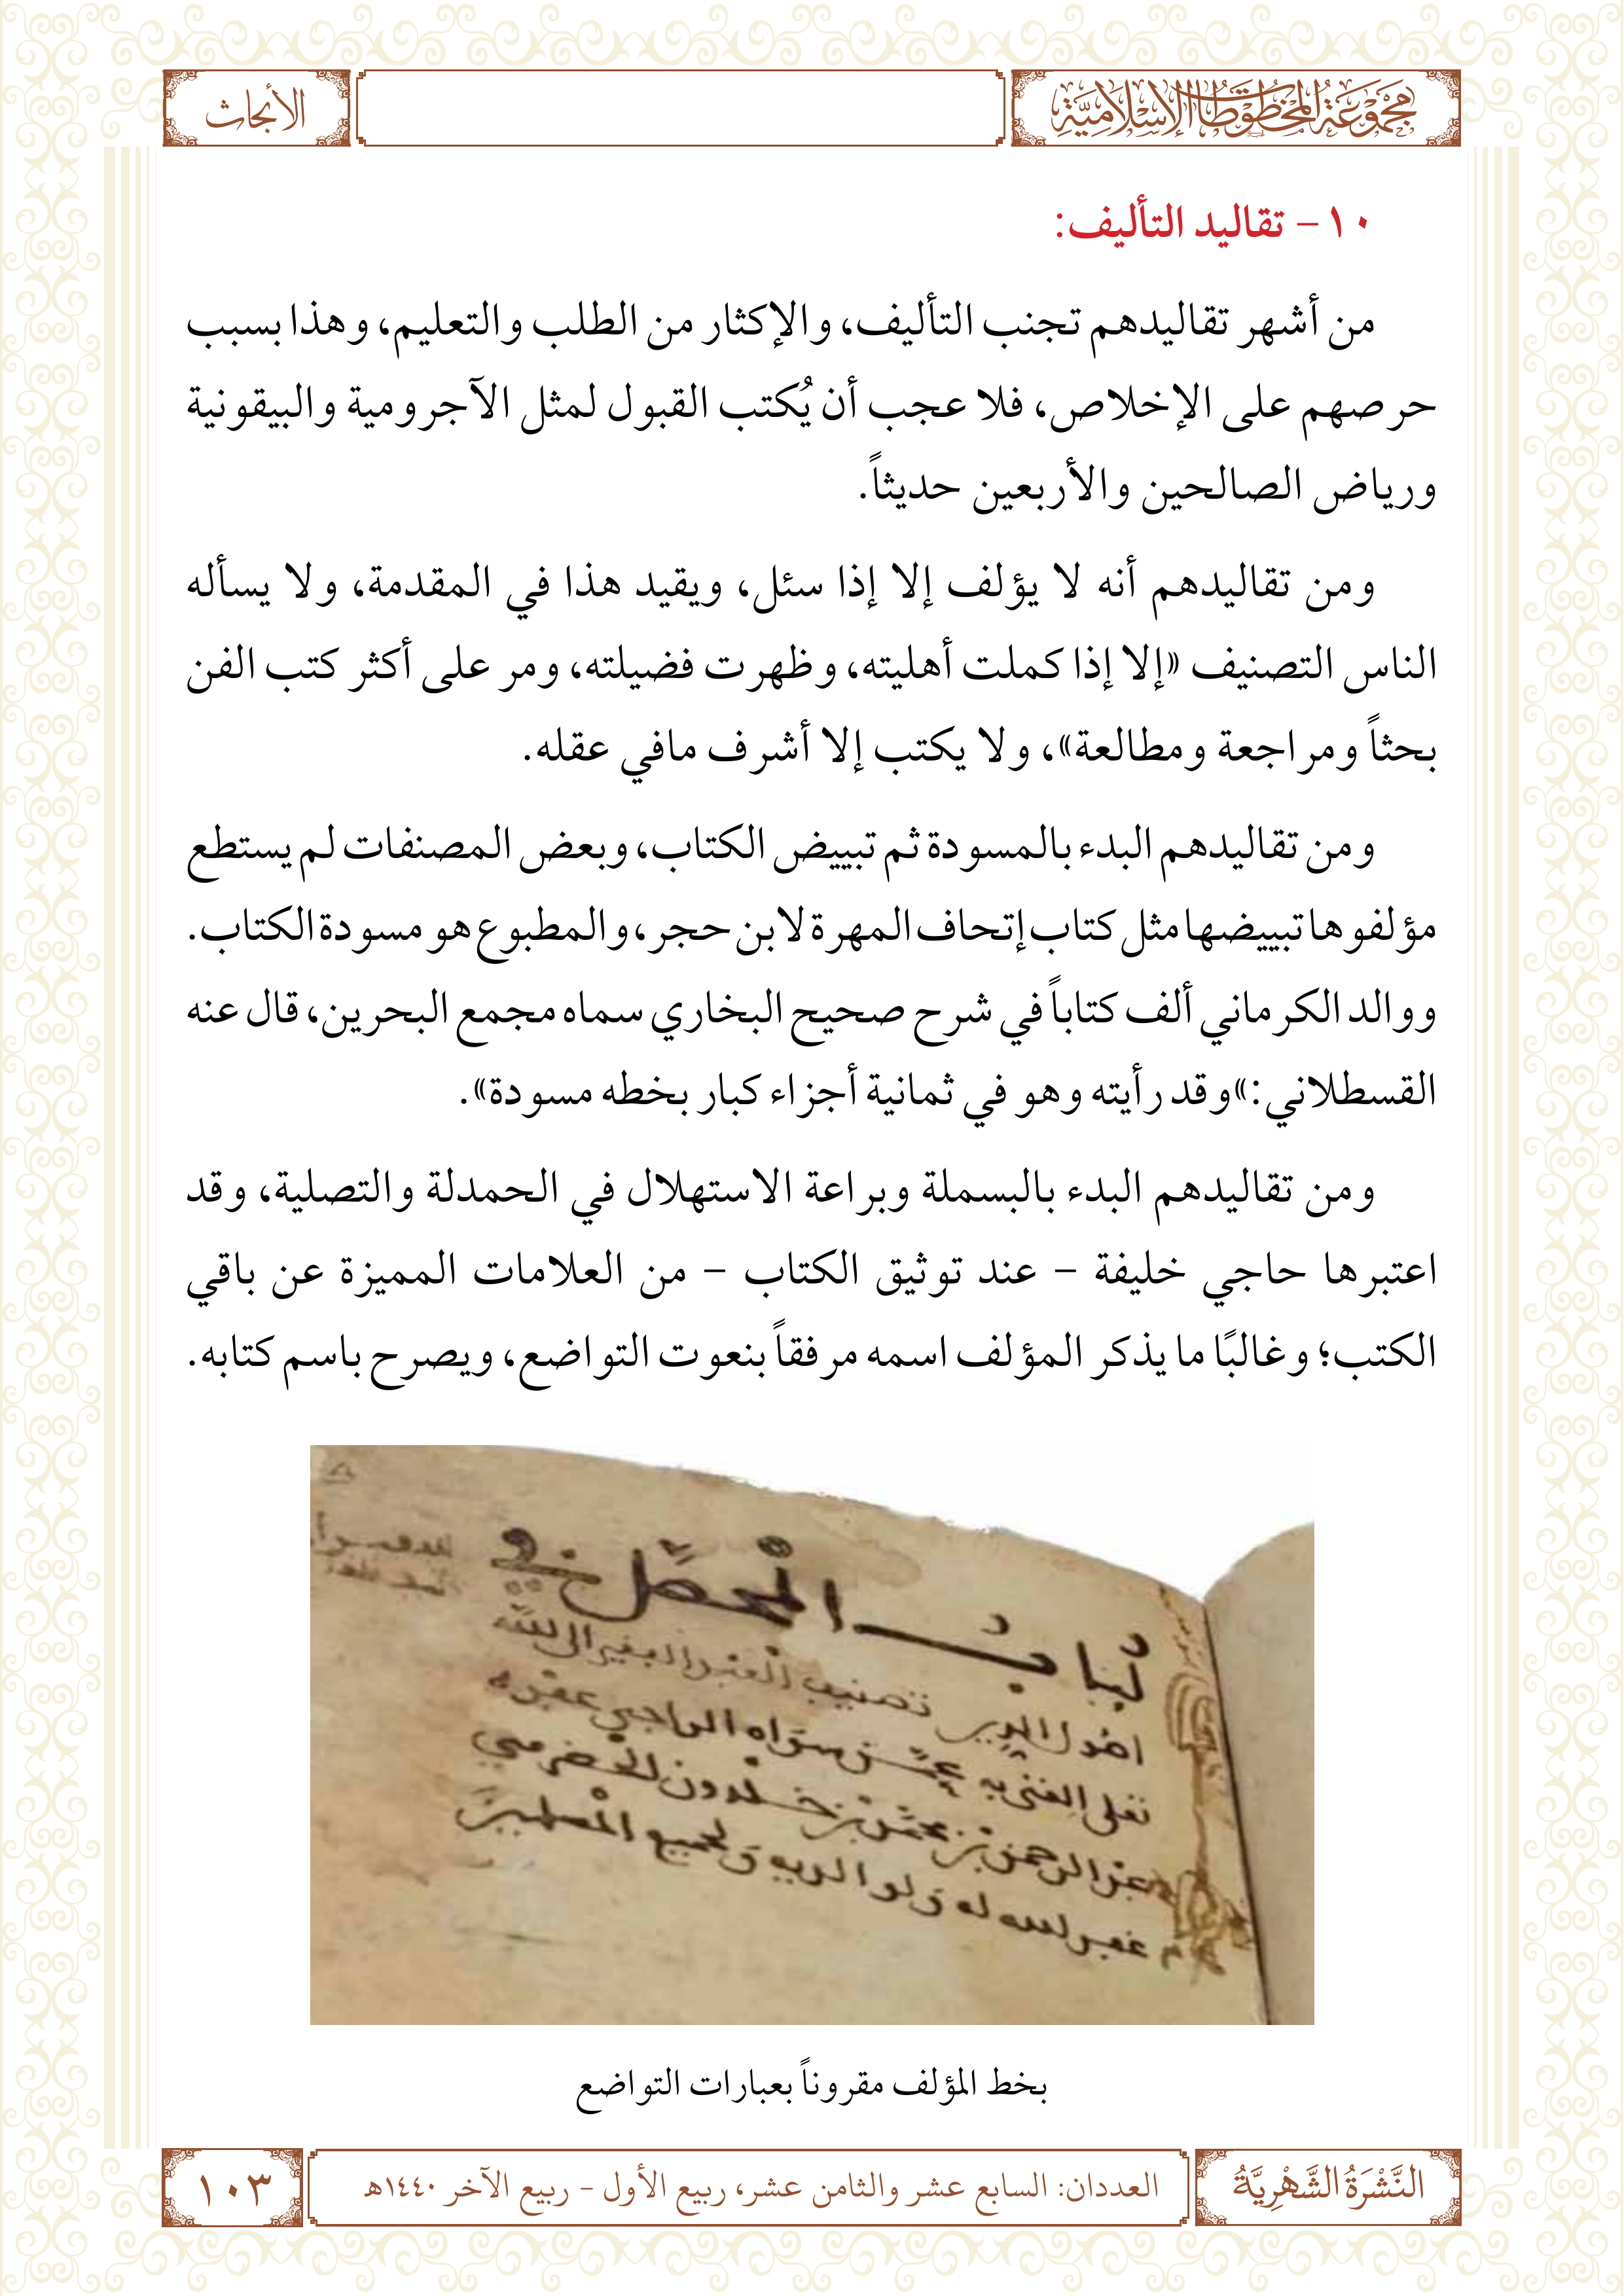 مَجْمُوعَةُ المَخْطُوطَاتِ الإِسْلَامِيَّةِ
الأبحاث
١٠- تقاليد التأليف:
من أشهر تقاليدهم تجنب التأليف، والإكثار من الطلب والتعليم، وهذا بسبب
حرصهم على الإخلاص، فلا عجب أن يُكتب القبول لمثل الآجرومية والبيقونية
ورياض الصالحين والأربعين حديثاً.
ومن تقاليدهم أنه لا يؤلف إلا إذا سئل، ويقيد هذا في المقدمة، ولا يسأله
الناس التصنيف «إلا إذا كملت أهليته، وظهرت فضيلته، ومر على أكثر كتب الفن
بحثاً ومراجعة ومطالعة»، ولا يكتب إلا أشرف مافي عقله.
ومن تقاليدهم البدء بالمسودة ثم تبييض الكتاب، وبعض المصنفات لم يستطع
مؤلفوها تبييضها مثل كتاب إتحاف المهرة لابن حجر، والمطبوع هو مسودة الكتاب.
ووالد الكرماني ألف كتاباً في شرح صحيح البخاري سماه مجمع البحرين، قال عنه
القسطلاني:»وقد رأيته وهو في ثمانية أجزاء كبار بخطه مسودة».
ومن تقاليدهم البدء بالبسملة وبراعة الاستهلال في الحمدلة والتصلية، وقد
اعتبرها حاجي خليفة - عند توثيق الكتاب - من العلامات المميزة عن باقي
الكتب؛ وغالبًا ما يذكر المؤلف اسمه مرفقاً بنعوت التواضع، ويصرح باسم كتابه.
لباب المحصل في
اصول الدين تصنيف العبد الفقير الى الله
تعلى الغني به عمن سواه الراجي عفوه
عبد الرحمن بن محمد بن خلدون الحضرمي
غفر الله له ولوالديه ولجميع المسلمين
بخط المؤلف مقروناً بعبارات التواضع
النَّشْرَةُ الشَّهْرِيَّةُ
العددان: السابع عشر والثامن عشر، ربيع الأول - ربيع الآخر ١٤٤٠هـ
١٠٣